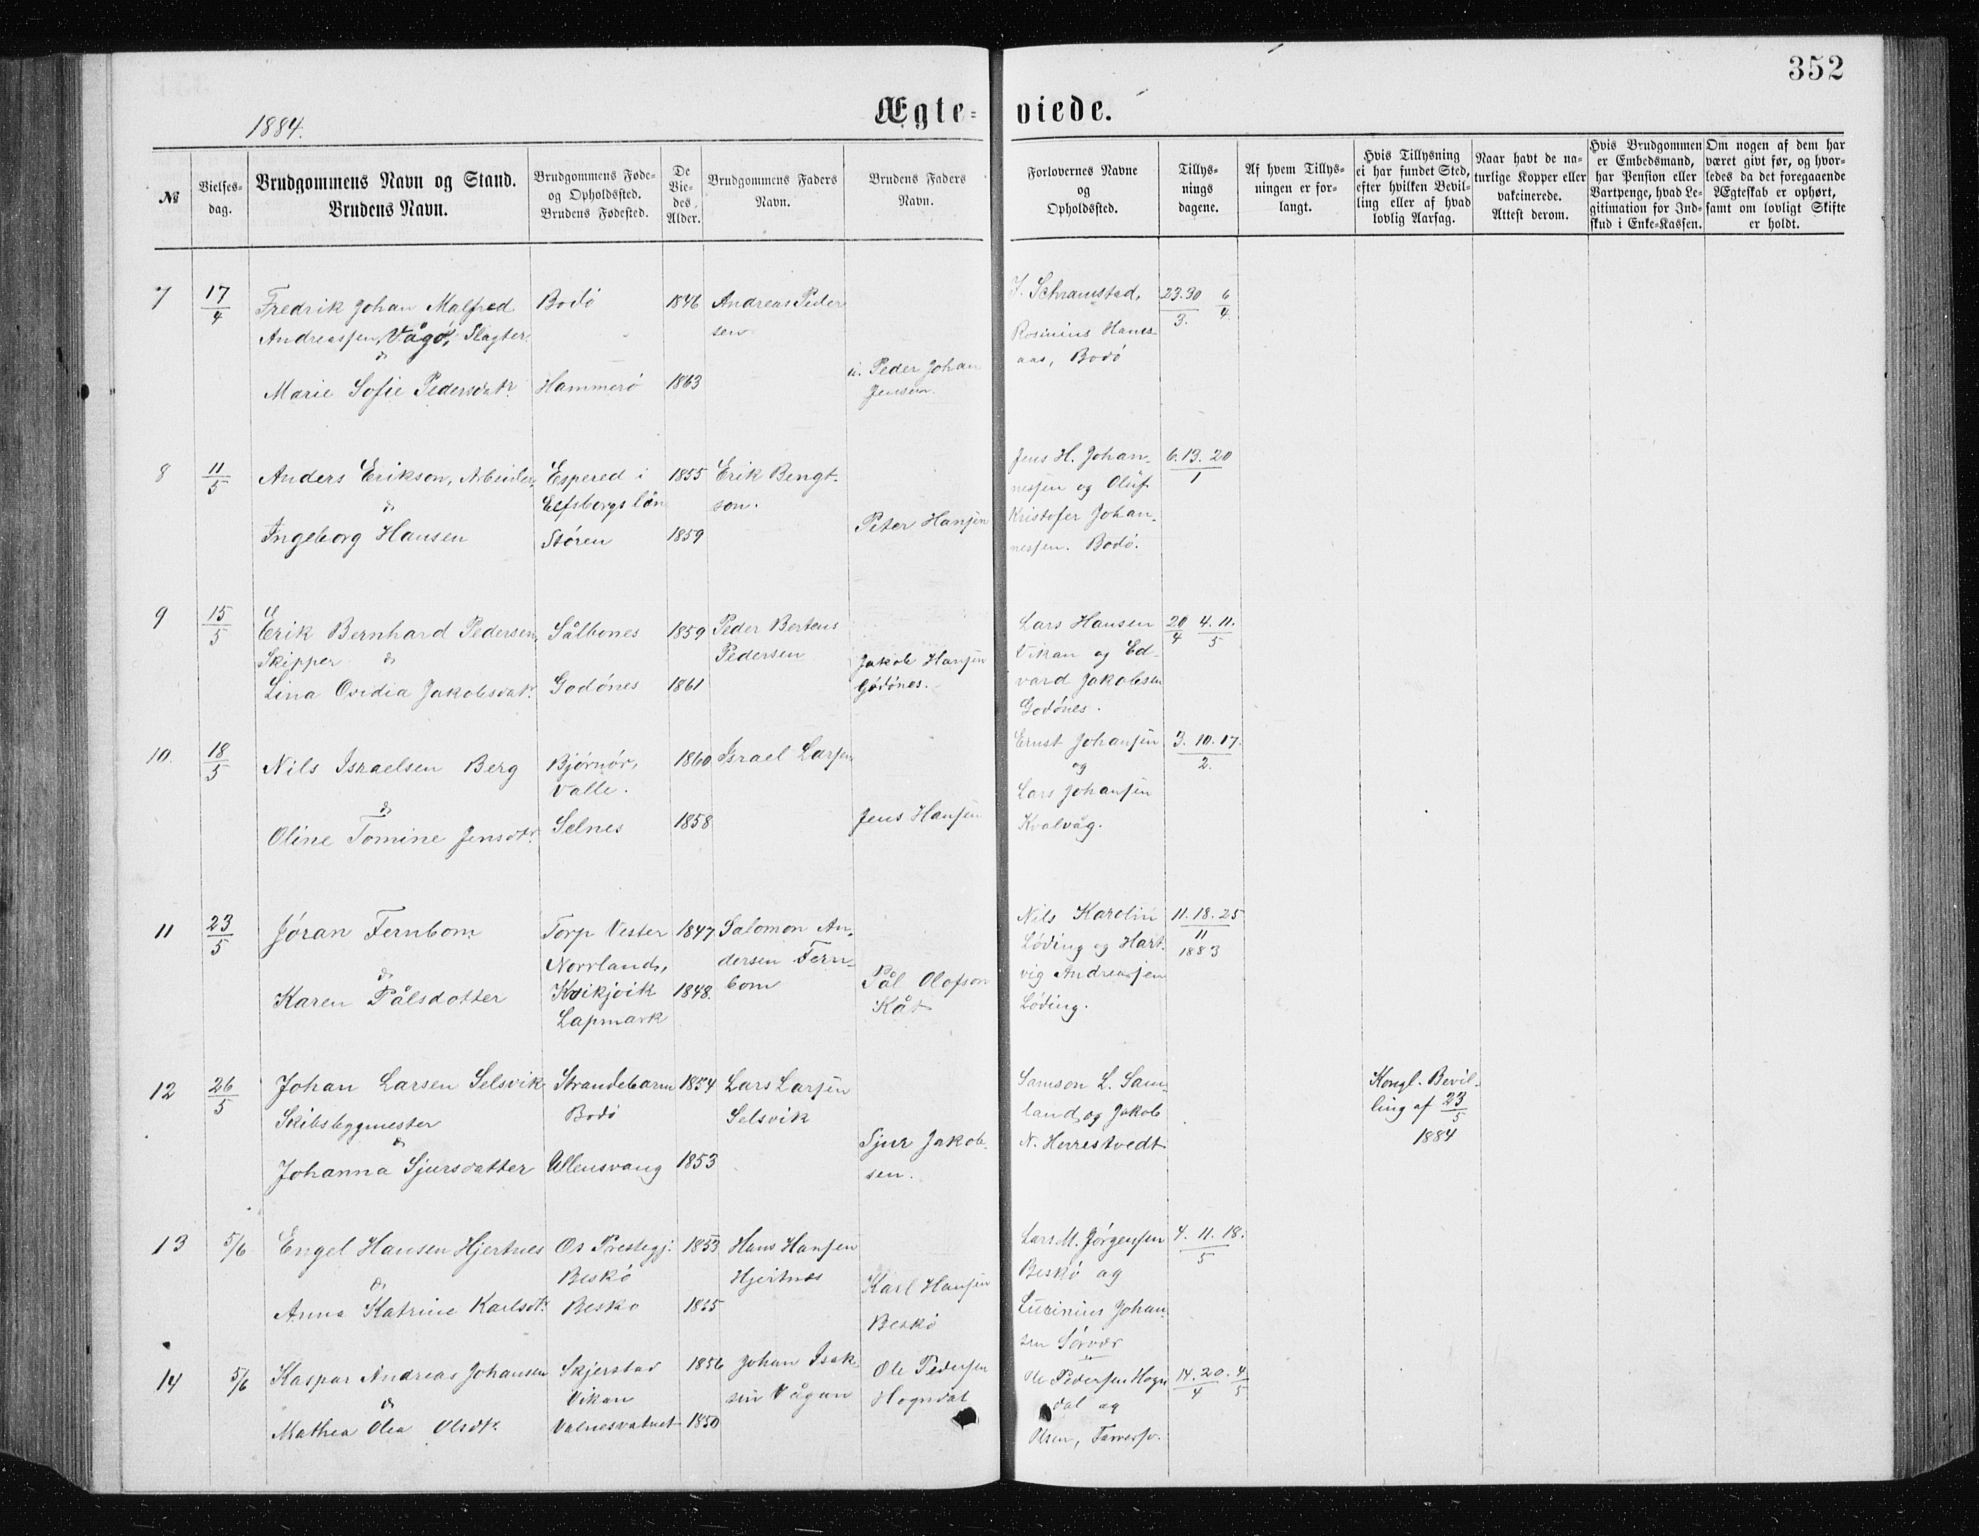 352
Ægte-
viede.
1884.
№
Vielses-
dag.
Brudgommens Navn og Stand.
Brudens Navn.
Brudgommens Føde-
og Opholdssted.
Brudens Fødested.
De
Vie-
des
Alder.
Brudgommens Faders
Navn.
Brudens Faders
Navn.
Forlovernes Navne
og
Opholdssted.
Tillys-
nings
dagene.
Af hvem Tillys-
ningen er for-
langt.
Hvis Tillysning
ei har fundet Sted,
efter hvilken Bevil-
ling eller af hvad
lovlig Aarsag.
Naar havt de na-
turlige Kopper eller
vakcinerede.
Attest derom.
Hvis Brudgommen
er Embedsmand,
har Pension eller
Vartpenge, hvad Le-
gitimation for Ind-
skud i Enke-Kassen.
Om nogen af dem har
været givt før, og hvor-
ledes da det foregaaende
Ægteskab er ophørt,
samt om lovligt Skifte
er holdt.
7
17/4
Fredrik Johan Malfred
Andreassen, Vågø, Slagter
&
Marie Sofie Pedersdatr
Bodø
Hammerø
1846
1863
Andreas Peder
sen
u. Peder Johan
Jensen.
J. Schramstad,
Rosinius Hans
aas, Bodø
23.30/3. 6/4.
8
11/5
Anders Erikson, Arbeider
&
Ingeborg Hansen
Espered i
Elfsborgs län
Støren
1855
1859
Erik Bengt-
son.
Peter Hansen
Jens H. Johan-
nessen og Oluf
Kristofer Johan-
nessen. Bodø.
6.13.20/1
9
15/5
Erik Bernhard Pedersen
Skipper &
Lina Ovidia Jakobsdatr.
Sålbones
Godønes
1859
1861
Peder Berteus
Pedersen
Jakob Hansen
Godønes.
Lars Hansen
Vikan og Ed-
vard Jakobsen
Godønes.
20/4 4.11./5
10.
18/5
Nils Israelsen Berg
&
Oline Tomine Jensdtr.
Bjørnør,
Valle.
Selnes
1860
1858
Israel Larsen
Jens Hansen
Ernst Johansen
og
Lars Johansen
Kvalvåg.
3.10.17./2.
11
23/5
Jøran Fernbom
&
Karen Pålsdotter
Torp Vester
Norrland,
Kvikjvik
Lapmark
1847
1848.
Salomon An-
dersen Fern-
bom
Pål Olofson
Kåt
Nils Karolin
Løding og Hart-
vig Andreassen
Løding.
11.18.25/11
1883
12
26/5
Johan Larsen Selsvik
Skibsbygmester
&
Johanna Sjursdatter
Strandebarm
Bodø
Ullensvang
1854
1853
Lars Larsen
Selsvik
Sjur Jakob-
sen.
Samson L. Sam-
land og Jakob
N. Herrestvedt
Kongl. Bevil-
ling af 23/5
1884
13
5/6
Engel Hansen Hjertnes
&
Anna Katrine Karlsdtr.
Os Prestegj.
Beskø
Beskø
1853
1865
Hans Hansen
Hjertnæs
Karl Hansen
Beskø
Lars M. Jørgensen
Beskø og
Lucinius Johan-
sen Sørvær
4.11.18./5
14
5/6
Kaspar Andreas Johansen
&
Mathea Olea Olsdtr.
Skjerstad
Vikan
Valnesvatnet
1856
1850
Johan Isak-
sen Vågan
Ole Pedersen
Hogndal
Ole Pedersen Hogn
dal og
Olsen,
14.20./4 4/5